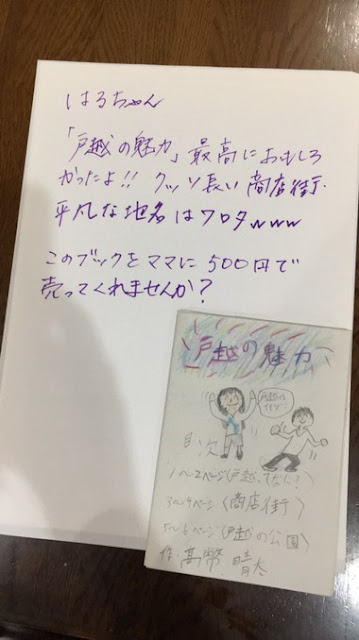 はるちゃん
「戸越の魅力」最高におもしろ
かったよ!! クッソ長い商店街
平凡な地名はワロタwww
このブックをママに500円で
売ってくれませんか?
戸越の魅力
目次
1~2ページ(戸越ってなに?)
3~4ページ(商店街)
5~6ページ(戸越の公園)
作:髙幣 晴太